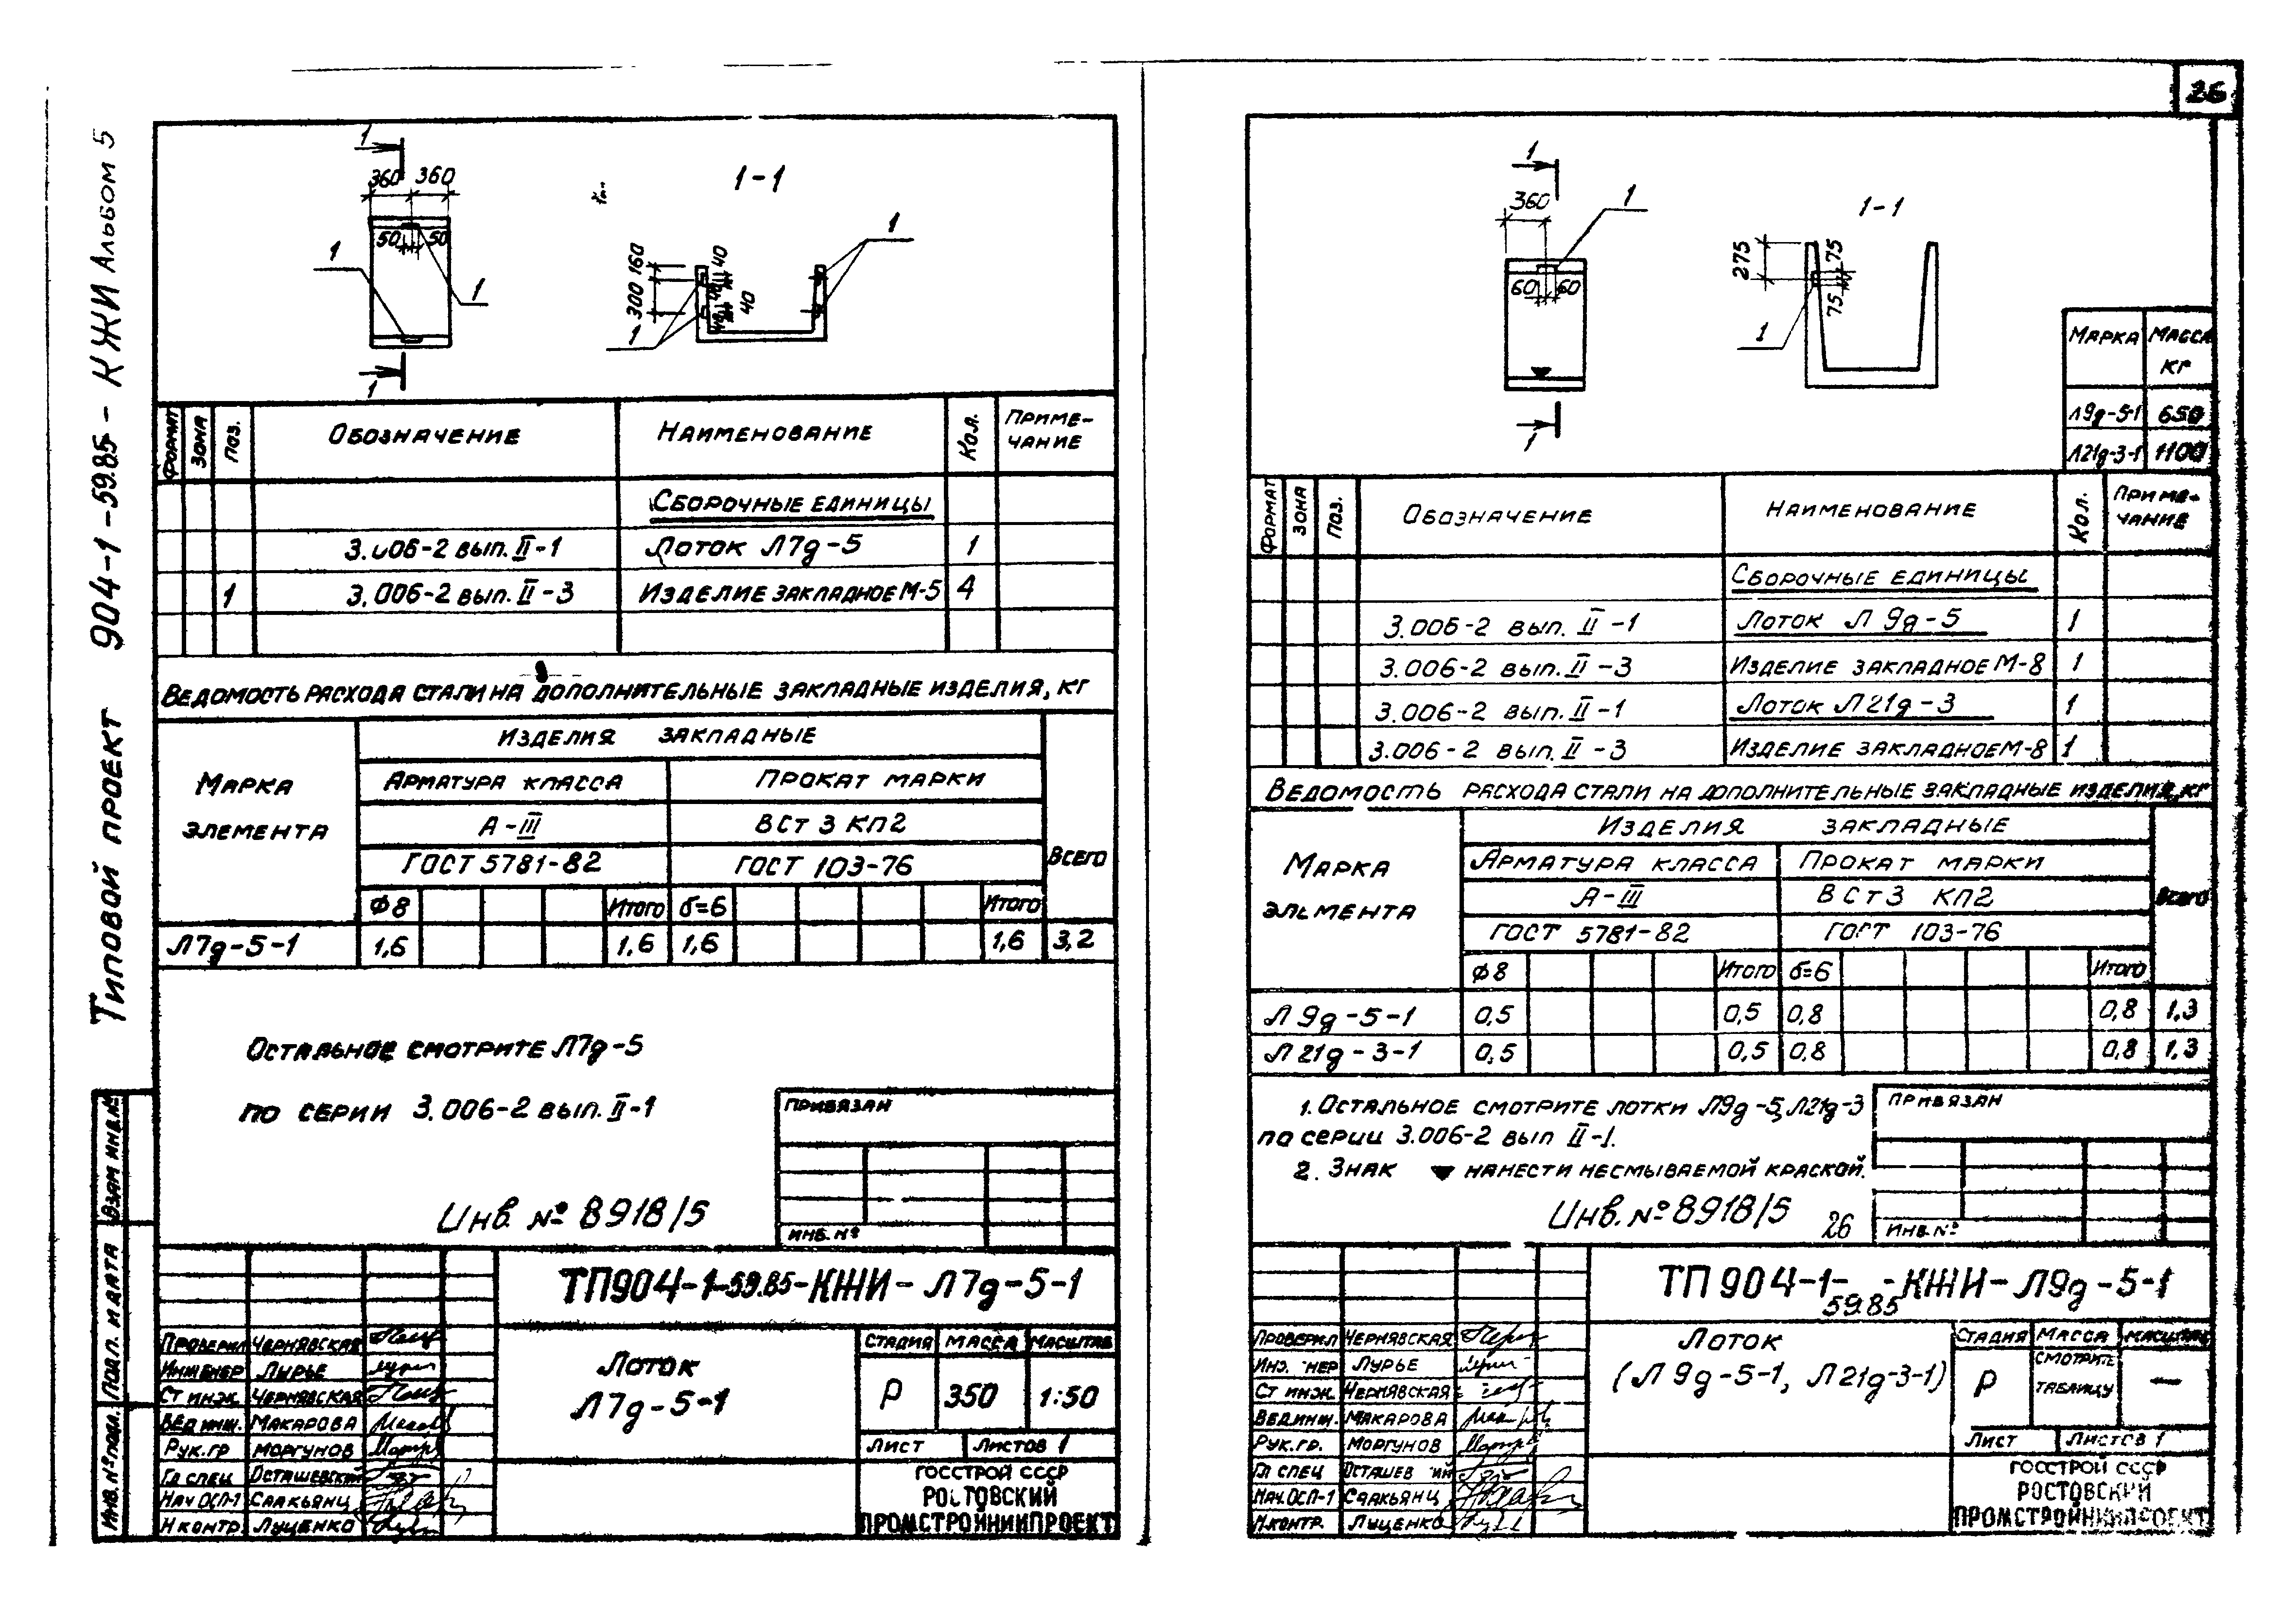 26
Типовой проект 904-1-59.85 - КЖИ Альбом 5
1
360 360
1-1
1
50 50
1
1
160
300
40
40
1
1
Формат Зона Поз. Обозначение Наименование Кол. Приме-
чание
Сборочные единицы
3.006-2 вып. II-1 Лоток Л7д-5 1
1 3.006-2 вып. II-3 Изделие закладное М-5 4
Ведомость расхода стали на дополнительные закладные изделия, кг
Марка
элемента
Изделия закладные
Всего
Арматура класса Прокат марки
А-III ВСт 3 кп2
ГОСТ 5781-82 ГОСТ 103-76
ф8 Итого б=6 Итого
Л7д-5-1 1,6 1,6 1,6 1,6 3,2
Остальное смотрите Л7д-5
по серии 3.006-2 вып. II-1
Привязан
Инв. №
Инв. № 8918/5
Взам инв.№
Подп. и дата
Инв. № подл.
ТП904-1-59.85-КЖИ-Л7д-5-1
Проверил Чернявская
Инженер Лурье
Ст инж. Чернявская
Вед инж. Макарова
Рук. гр Моргунов
Гл спец Осташевский
Нач ОСП-1 Саакьянц
Н контр. Луценко
Лоток
Л7д-5-1
Стадия Масса Масштаб
Р 350 1:50
Лист Листов 1
ГОССТРОЙ СССР
РОСТОВСКИЙ
ПРОМСТРОЙНИИПРОЕКТ
1
360
1
1-1
60 60
275
75
75
1
1
Марка Масса
кг
Л9д-5-1 650
Л21д-3-1 1100
Формат Зона Поз. Обозначение Наименование Кол. Приме-
чание
Сборочные единицы
3.006-2 вып. II-1 Лоток Л 9д-5 1
3.006-2 вып. II-3 Изделие закладное М-8 1
3.006-2 вып. II-1 Лоток Л21д-3 1
3.006-2 вып. II-3 Изделие закладное М-8 1
Ведомость расхода стали на дополнительные закладные изделия, кг
Марка
элемента
Изделия закладные
Всего
Арматура класса Прокат марки
А-III ВСт3 кп2
ГОСТ 5781-82 ГОСТ 103-76
ф8 Итого б=6 Итого
Л 9д-5-1 0,5 0,5 0,8 0,8 1,3
Л 21д-3-1 0,5 0,5 0,8 0,8 1,3
1. Остальное смотрите лотки Л9д-5, Л21д-3
по серии 3.006-2 вып II-1.
2. Знак ▼ нанести несмываемой краской.
Привязан
Инв. №
Инв. № 8918/5 26
ТП 904-1- -КЖИ-Л9д-5-1
59.85
Проверил Чернявская
Инж нер Лурье
Ст инж. Чернявская
Вед.инж. Макарова
Рук. гр. Моргунов
Гл спец Осташев ий
Нач. ОСП-1 Саакьянц
Н.контр. Луценко
Лоток
(Л 9д-5-1, Л21д-3-1)
Стадия Масса Масштаб
Р смотрите
таблицу —
Лист Листов 1
ГОССТРОЙ СССР
РОСТОВСКИЙ
ПРОМСТРОЙНИИПРОЕКТ